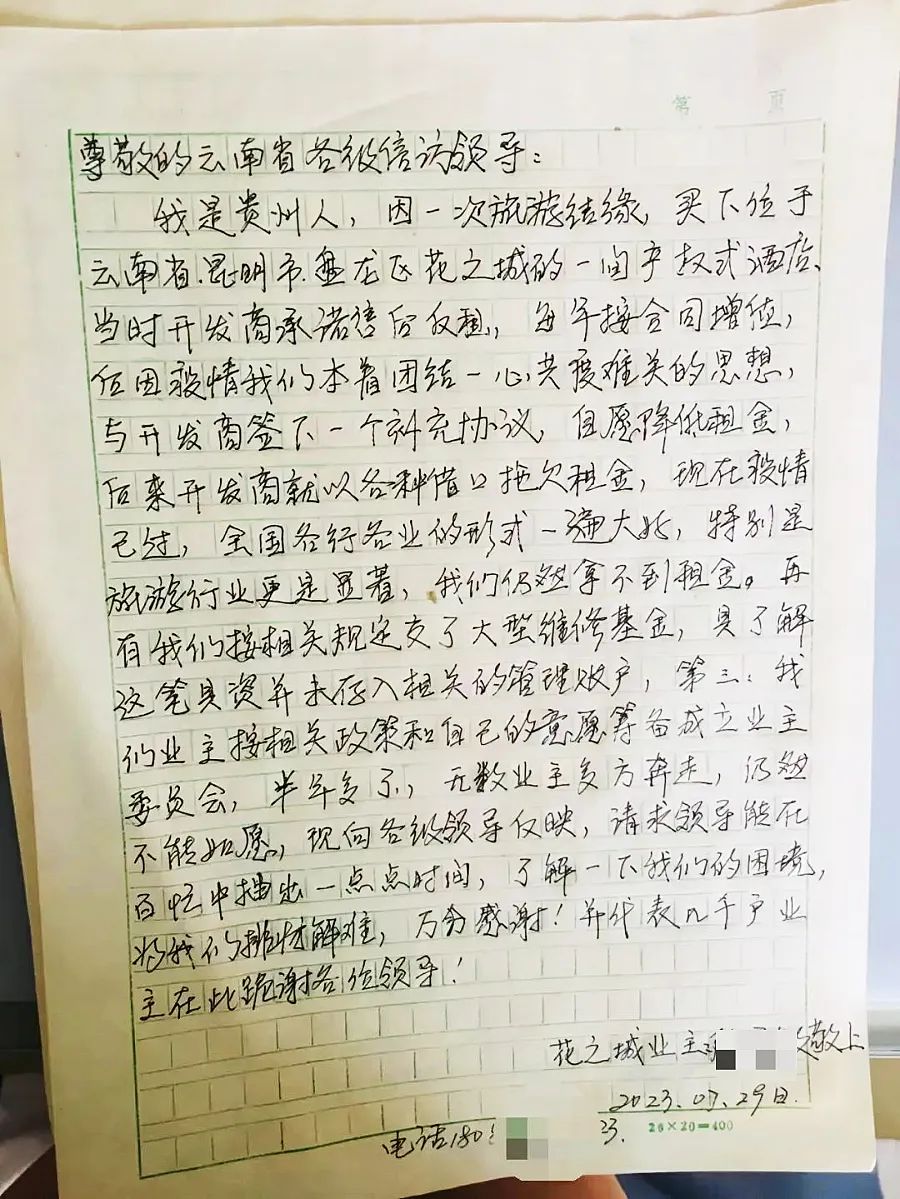 第 页
尊敬的云南省各级信访领导：
我是贵州人，因一次旅游结缘，买下位于
云南省.昆明市.盘龙区花之城的一间产权式酒店、
当时开发商承诺售后反租，每年按合同增值，
但因疫情我们本着团结一心共度难关的思想，
与开发商签下一个补充协议，自愿降低租金，
后来开发商就以各种借口拖欠租金，现在疫情
已过，全国各行各业的形式一遍大好，特别是
旅游行业更是显著，我们仍然拿不到租金。再
有我们按相关规定交了大型维修基金，具了解
这笔具资并未存入相关的管理账户，第三：我
们业主按相关政策和自己的意愿筹备成立业主
委员会，半年多了，无数业主多方奔走，仍然
不能如愿，现向各级领导反映，请求领导能在
百忙中抽出一点点时间，了解一下我们的困境，
为我们排忧解难，万分感谢！并代表几千户业
主在此跪谢各位领导！
花之城业主 敬上
2023.07.29日.
23. 20×20=400
电话180